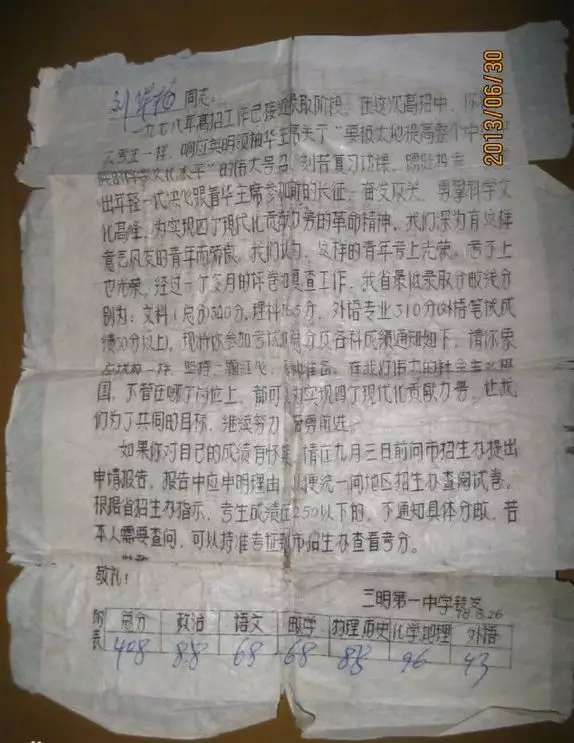 刘 同志:
一九七八年高招工作已接近录取阶段。在这次高招中,你
考生一样,响应英明领袖华主席关于"要极大地提高整个中
科学文化水平"的伟大号召,刻苦复习功课,踊跃报考,
出年轻一代决心跟着华主席参加新的长征,奋发攻关,勇攀科学文
化高峰,为实现四个现代化贡献力量的革命精神。我们深为有这样
意气风发的青年而骄傲。我们认为,这样的青年考上光荣。考不上
也光荣。经过一个多月的评卷和复查工作,我省最低录取分数线分
别为:文科(总分)340分,理科365分,外语专业310分(外语笔试成
绩50分以上)。现将你参加考试的总分及各科成绩通知如下,请你象
一样,坚持一颗红心,准备。在我们伟大的社会主义祖
国,不管在哪个岗位上,都可为实现四个现代化贡献力量,让我
们为了共同的目标,继续努力,奋勇前进。
如果你对自已的成绩有怀疑,请在九月三日前向市招生办提出
申请报告。报告中应申明理由,以便统一向地区招生办查阅试卷。
根据省招生办指示,考生成绩在250以下的,不通知具体分数,若
本人需要查问,可以持准考证到市招生办查看考分。
敬礼!
三明第一中学转发
78.8.26
附表 总分 政治 语文 数学 物理 历史 化学 地理 外语
408 88 68 68 88 96 43
2013/06/30